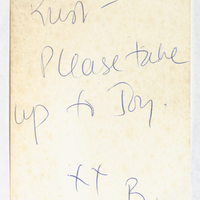 Please take
up to Joy.
xx
B